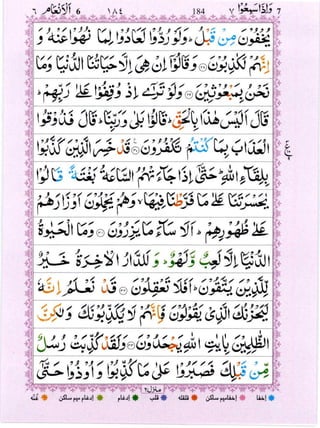 7 وَاِذَا سَمِعُوْا ٧ 184 ١٨٤ 6 اَلْاَنْعَام ٦
يُخْفُوْنَ مِنْ قَبْلُ ؕ وَلَوْ رُدُّوْا لَعَادُوْا لِمَا نُهُوْا عَنْهُ وَ
اِنَّهُمْ لَكٰذِبُوْنَ ۝ وَقَالُوْۤا اِنْ هِیَ اِلَّا حَيَاتُنَا الدُّنْيَا وَمَا
نَحْنُ بِمَبْعُوْثِيْنَ ۝ وَلَوْ تَرٰۤى اِذْ وُقِفُوْا عَلٰى رَبِّهِمْ ؕ
قَالَ اَلَيْسَ هٰذَا بِالْحَقِّ ؕ قَالُوْا بَلٰى وَرَبِّنَا ؕ قَالَ فَذُوْقُوا
الْعَذَابَ بِمَا كُنْتُمْ تَكْفُرُوْنَ ۝ قَدْ خَسِرَ الَّذِيْنَ كَذَّبُوْا
بِلِقَآءِ اللّٰهِ ؕ حَتّٰۤى اِذَا جَآءَتْهُمُ السَّاعَةُ بَغْتَةً قَالُوْا
يٰحَسْرَتَنَا عَلٰى مَا فَرَّطْنَا فِيْهَا ۙ وَهُمْ يَحْمِلُوْنَ اَوْزَارَهُمْ
عَلٰى ظُهُوْرِهِمْ ؕ اَلَا سَآءَ مَا يَزِرُوْنَ ۝ وَمَا الْحَيٰوةُ
الدُّنْيَاۤ اِلَّا لَعِبٌ وَّلَهْوٌ ؕ وَ لَلدَّارُ الْاٰخِرَةُ خَيْرٌ
لِّلَّذِيْنَ يَتَّقُوْنَ ؕ اَفَلَا تَعْقِلُوْنَ ۝ قَدْ نَعْلَمُ اِنَّهٗ
لَيَحْزُنُكَ الَّذِيْ يَقُوْلُوْنَ فَاِنَّهُمْ لَا يُكَذِّبُوْنَكَ وَلٰكِنَّ
الظّٰلِمِيْنَ بِاٰيٰتِ اللّٰهِ يَجْحَدُوْنَ ۝ وَلَقَدْ كُذِّبَتْ رُسُلٌ
مِّنْ قَبْلِكَ فَصَبَرُوْا عَلٰى مَا كُذِّبُوْا وَ اُوْذُوْا حَتّٰۤى
منزل ٢
اخفا اخفامیم ساکن قلقلہ قلب ادغام ادغام میم ساکن غنّہ